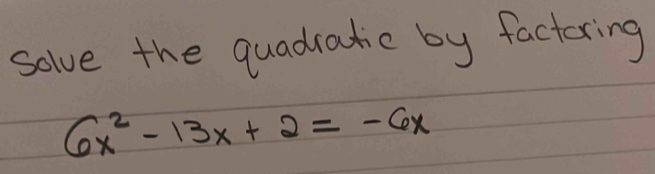 Solve the quadratic by factoring
6x² - 13x + 2 = -6x